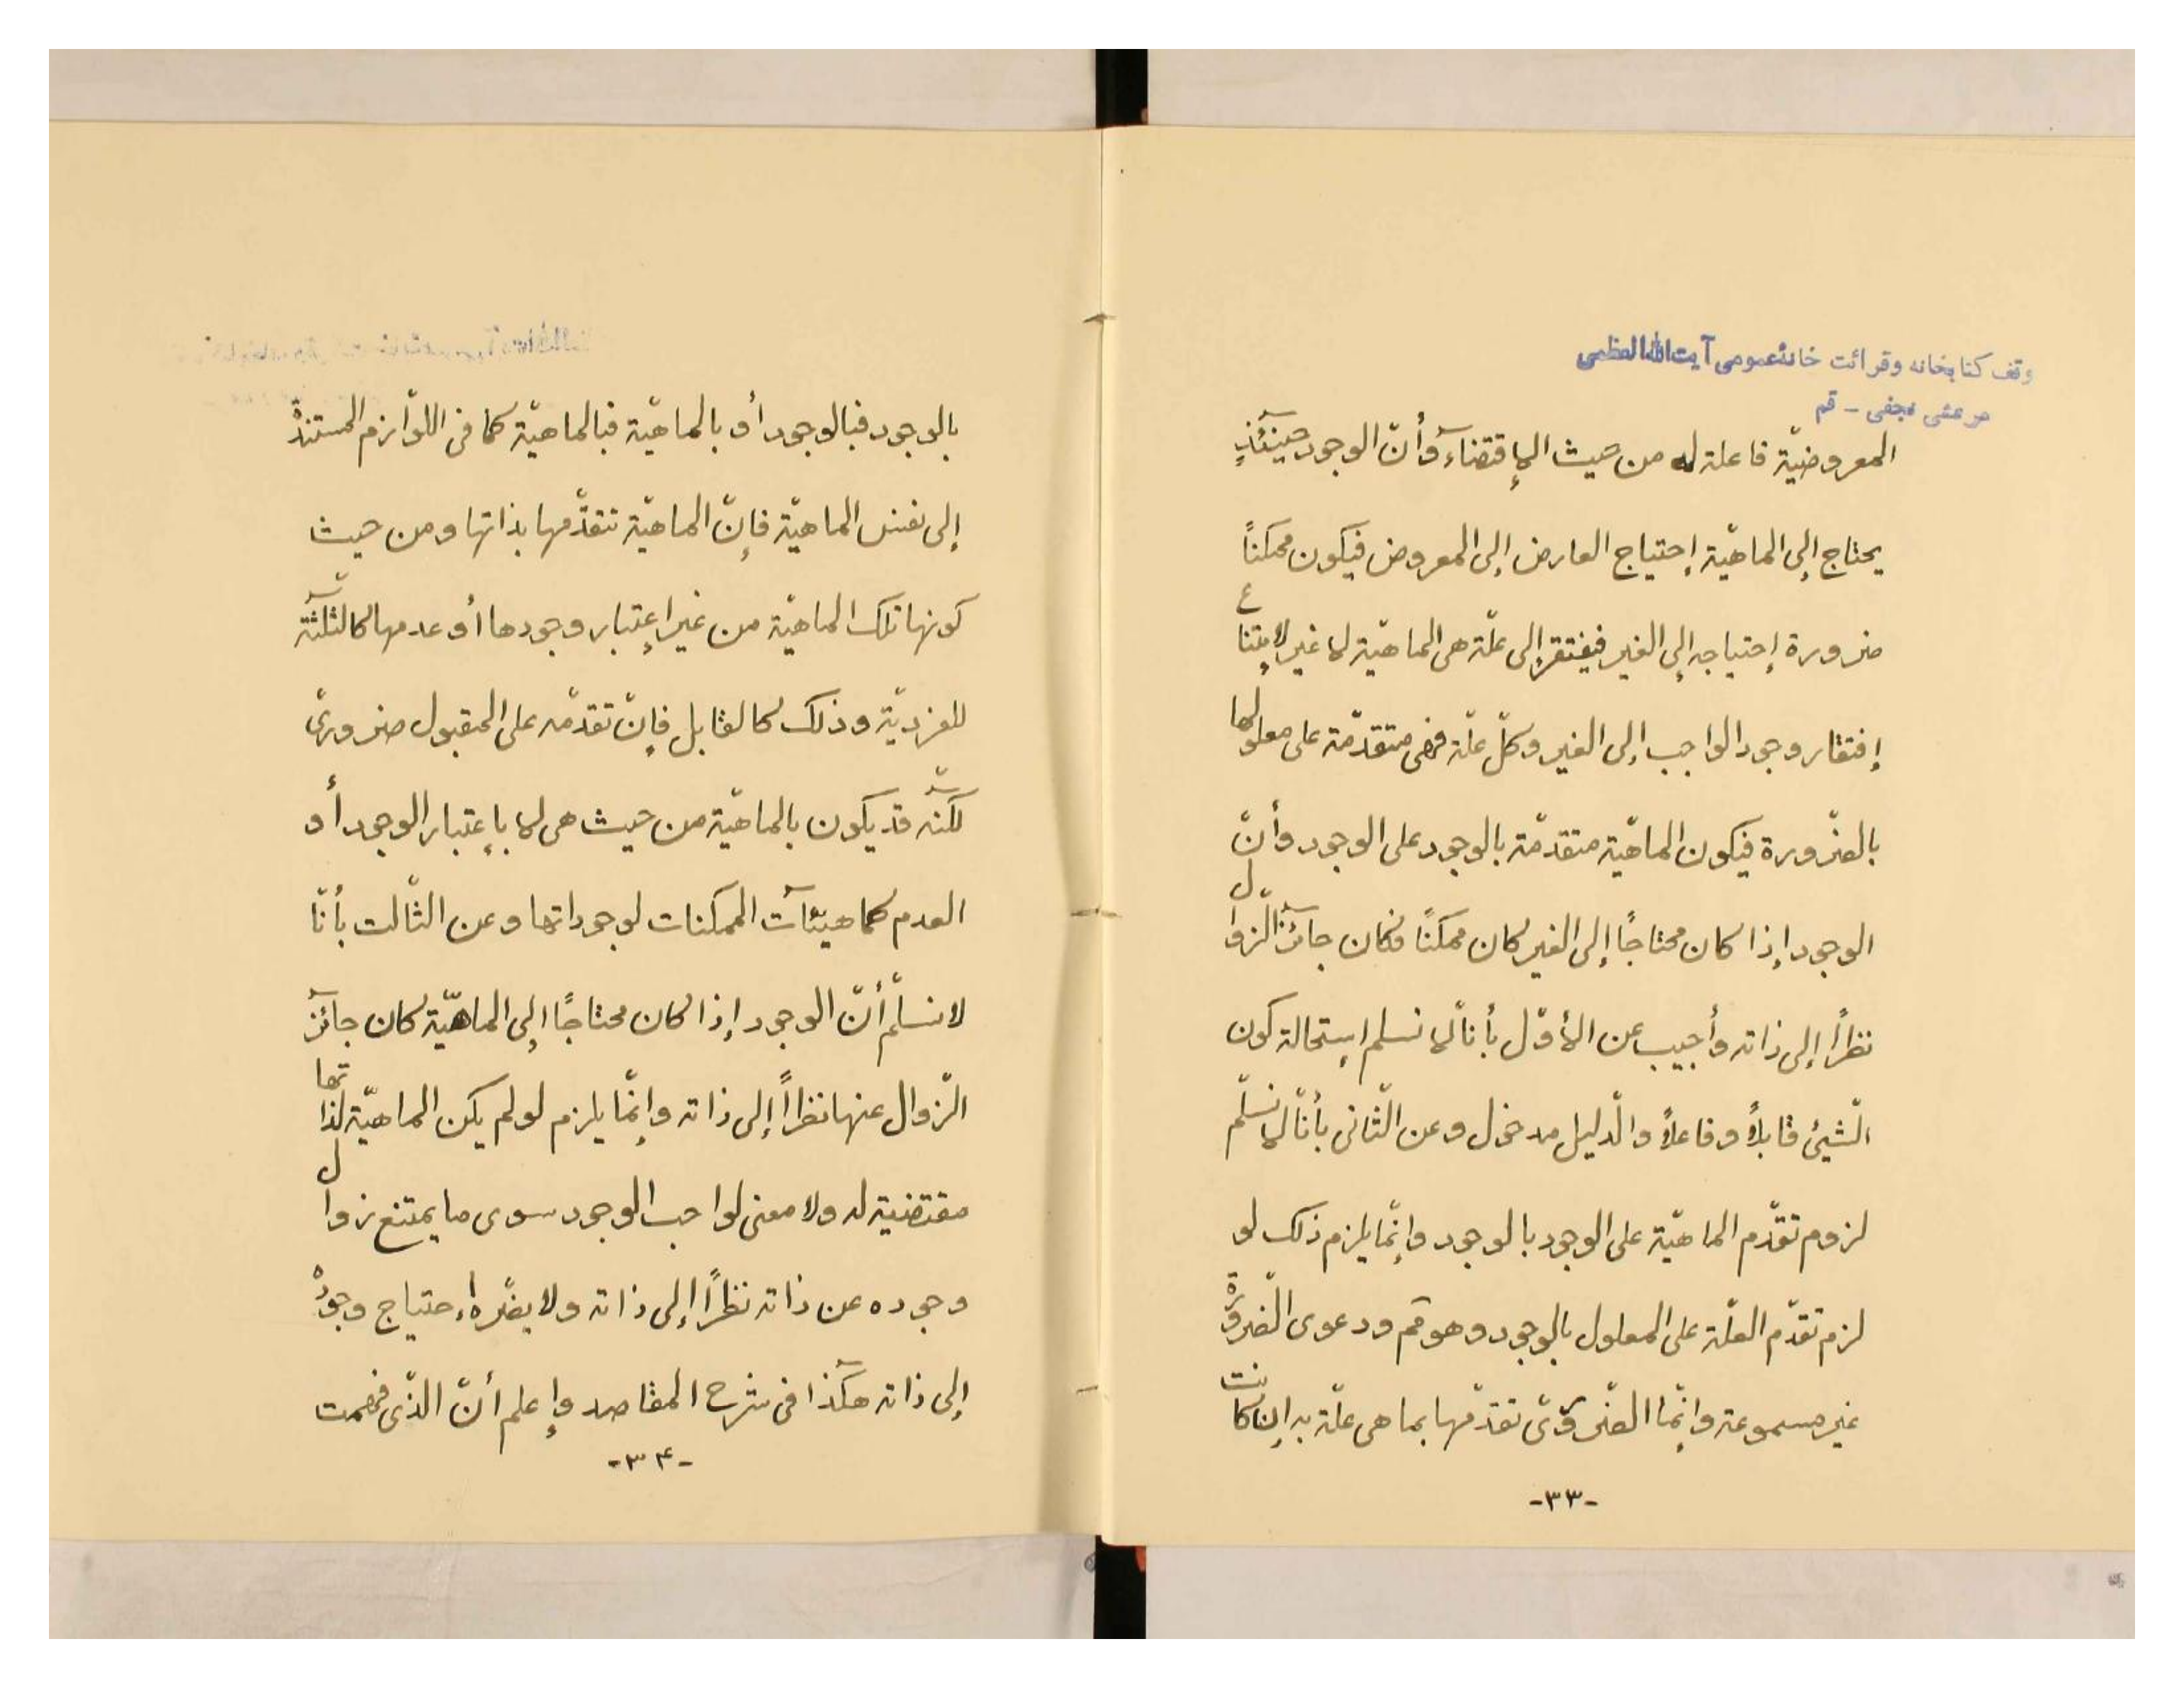 وقف كتابخانه وقرائت خانهٔ عمومى آيت الله العظمى
مرعشى نجفى - قم
المعروضيّة فاعلة له من حيث الإقتضاء وأنّ الوجود حينئذٍ
يحتاج إلى الماهيّة إحتياج العارض إلى المعروض فيكون ممكناً
ضرورة إحتياجه إلى الغير فيفتقر إلى علّة هى الماهيّة لا غير لامتناع
إفتقار وجود الواجب إلى الغير وكلّ علّة فهى متقدّمة على معلولها
بالضّرورة فيكون الماهيّة متقدّمة بالوجود على الوجود وأنّ
الوجود إذا كان محتاجًا إلى الغير كان ممكنًا فكان جائز الزّوال
نظراً إلى ذاته وأجيب عن الأوّل بأنّا لا نسلم إستحالة كون
الشّيئ قابلاً وفاعلاً والدّليل مدخول وعن الثّانى بأنّا لا نسلّم
لزوم تقدّم الماهيّة على الوجود بالوجود وإنّما يلزم ذلك لو
لزم تقدّم العلّة على المعلول بالوجود وهو مم ودعوى الضّرورة
غير مسموعة وإنّما الضّرورىّ تقدّمها بما هى علّة به إن كانت
-٣٣-
بالوجود فبالوجود أو بالماهيّة فبالماهيّة كما فى اللّوازم المستندة
إلى نفس الماهيّة فإنّ الماهيّة تتقدّمها بذاتها ومن حيث
كونها تلك الماهيّة من غير إعتبار وجودها أو عدمها كالثّلثة
للفرديّة وذلك كالقابل فإنّ تقدّمه على المقبول ضرورىّ
لكنّه قد يكون بالماهيّة من حيث هى لا بإعتبار الوجود أو
العدم كماهيّئآت الممكنات لوجوداتها وعن الثّالث بأنّا
لا نسلّم أنّ الوجود إذا كان محتاجًا إلى الماهيّة كان جائز
الزّوال عنها نظراً إلى ذاته وإنّما يلزم لو لم يكن الماهيّة لذاتها
مقتضية له ولا معنى لواجب الوجود سوى ما يمتنع زوال
وجوده عن ذاته نظراً إلى ذاته ولا يضّره إحتياج وجوده
إلى ذاته هكذا فى شرح المقاصد وإعلم أنّ الذّى فهمت
-٣۴-